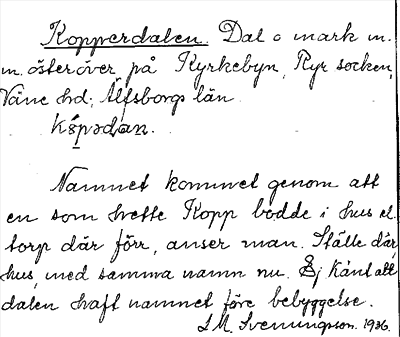 Kopperdalen. Dal o mark m. m. österöver på Kyrkebyn, Ryr socken, Väne hd; Älfsborgs län.
Namnet kommet genom att
en som hette Kopp bodde i hus el.
torp där förr, anser man. Ställe där,
hus, med samma namn nu. Ej känt att
dalen haft namnet före bebyggelse.
S. M. Svenungson. 1936.